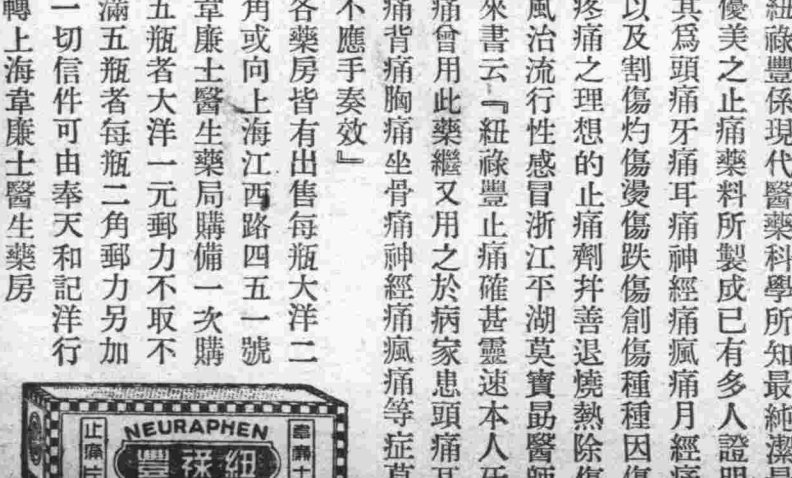 紐祿豐係現代醫藥科學所知最純潔最
優美之止痛藥料所製成已有多人證明
其爲頭痛牙痛耳痛神經痛瘋痛月經痛
以及割傷灼傷燙傷跌傷創傷種種因傷
疼痛之理想的止痛劑幷善退燒熱除傷
風治流行性感冒浙江平湖莫寶勗醫師
來書云『紐祿豐止痛確甚靈速本人牙
痛曾用此藥繼又用之於病家患頭痛耳
痛背痛胸痛坐骨痛神經痛瘋痛等症莫
不應手奏效』
各藥房皆有出售每瓶大洋二
角或向上海江西路四五一號
韋廉士醫生藥局購備一次購
五瓶者大洋一元郵力不取不
滿五瓶者每瓶二角郵力另加
一切信件可由奉天和記洋行
轉上海韋廉士醫生藥房
NEURAPHEN
紐祿豐
韋廉士
止痛片